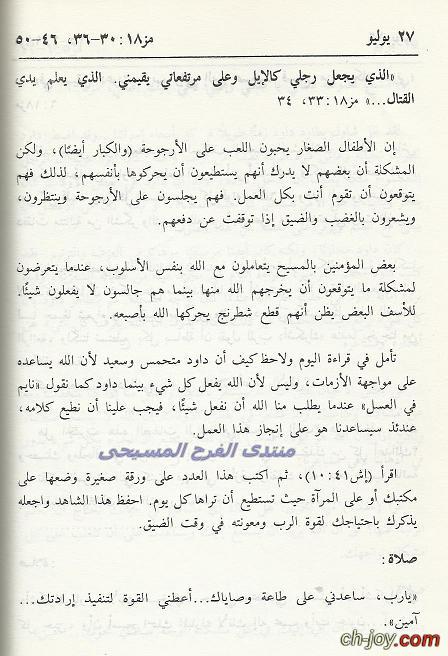 ٢٧ يوليو مز١٨:٣٠-٣٦، ٤٦-٥٠
«الذي يجعل رجلي كالإيل وعلى مرتفعاتي يقيمني. الذي يعلم يدي
القتال...» مز١٨:٣٣، ٣٤
إن الأطفال الصغار يحبون اللعب على الأرجوحة (والكبار أيضًا)، ولكن
المشكلة أن بعضهم لا يدرك أنهم يستطيعون أن يحركوها بأنفسهم، لذلك فهم
يتوقعون أن تقوم أنت بكل العمل. فهم يجلسون على الأرجوحة وينتظرون،
ويشعرون بالغضب والضيق إذا توقفت عن دفعهم.
بعض المؤمنين بالمسيح يتعاملون مع الله بنفس الأسلوب، عندما يتعرضون
لمشكلة ما يتوقعون أن يخرجهم الله منها بينما هم جالسون لا يفعلون شيئًا.
للأسف البعض يظن أنهم قطع شطرنج يحركها الله بأصبعه.
تأمل في قراءة اليوم ولاحظ كيف أن داود متحمس وسعيد لأن الله يساعده
على مواجهة الأزمات، وليس لأن الله يفعل كل شيء بينما داود كما نقول «نايم
في العسل» عندما يطلب منا الله أن نفعل شيئًا، فيجب علينا أن نطيع كلامه،
عندئذ سيساعدنا هو على إنجاز هذا العمل.
منتدى الفرح المسيحى
اقرأ (إش٤١:١٠)، ثم اكتب هذا العدد على ورقة صغيرة وضعها على
مكتبك أو على المرآة حيث تستطيع أن تراها كل يوم. احفظ هذا الشاهد واجعله
يذكرك باحتياجك لقوة الرب ومعونته في وقت الضيق.
صلاة:
«يارب، ساعدني على طاعة وصاياك...أعطني القوة لتنفيذ إرادتك...
آمين».
ch-joy.com